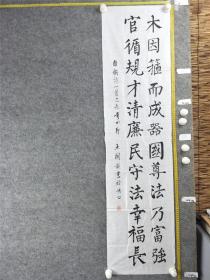 木因箍而成器國尊法乃富強
官循規才清廉民守法幸福長